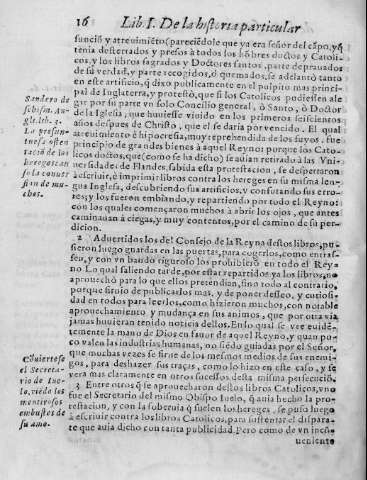 16 Lib. I. De la historia particular
sunció y atreuimiẽto pareciédole que ya era señor del cápo, yq̃
tenia desterrados y presos à todos los hõbres doctos y Catoli-
cos, y los libros sagrados y Doctores santos, parte deprauados
de su verdad, y parte recogidos, ò quemados, se adelantò tanto
en este su artificio, q̃ dixo publicamente en el pulpito mas prin-
cipal de Inglaterra, y protestò, que si los Catolicos pudiessen ale
gar por su parte vn solo Concilio general, ò Santo, ò Doctor
de la Iglesia, que huuiesse viuido en los primeros seiscientos
años despues de Christo, que el se daria por vencido. El qual
atreuimiento è hipocresia, muy reprehendida de los suyos, fue
principio de grandes bienes à aquel Reyno: porque los Cato-
licos doctos, que (como se ha dicho) se auian retirado à las Vni-
uersidades de Flandes, sabida esta protestacion, se despertaron
à escriuir, è imprimir libros contra los hereges en su misma len
gua Inglesa, descubriendo sus artificios, y confutando sus erro-
res; y los fueron embiando, y repartiendo por todo el Reyno:
con los quales començaron muchos à abrir los ojos, que antes
caminauan à ciegas, y muy contentos, por el camino de su per-
dicion.
2 Aduertidos los del Consejo de la Reyna destos libros, pu-
sieron luego guardas en las puertas, para cogerlos, como entras-
sen, y con vn bando riguroso los prohibierõ en todo el Rey-
no. Lo qual saliendo tarde, por estar repartidos ya los libros, no
aprouechò para lo que ellos pretendian, sino todo al contrario,
porque siruio de publicados mas, y de poner desseo, y curiosi-
dad en todos para leerlos, como hizieron muchos, con notable
aprouechamiento y mudança en sus animos, que por otra via
jamas huuieran tenido noticia dellos. En lo qual se vee euidẽ-
temente la mano de Dios en fauor de aquel Reyno, y quan po-
co valen las industrias humanas, no siẽdo guiadas por el Señor,
que muchas vezes se sirue de los mesmos medios de sus enemi-
gos, para deshazer sus traças, como lo hizo en este caso, y se
verà mas claramente en otros sucessos desta misma persecuciõ.
3 Entre otros q̃ se aprouecharon destos libros Catolicos, vno
fue el Secretario del mismo Obispo Iuelo, q̃ auia hecho la pro-
testacion, y con la soberuia q̃ suelen los hereges, se puso luego
à escriuir contra los libros Catolicos, para sustentar el dispara-
te que auia dicho con tanta publicidad. Pero como de vn incõ-
ueniente
Sandero de
schism. An-
gl. lib. 3.
La presun-
tuosa osten
tació de los
hereges cau
sò la conuer
sion de mu-
chos.
Cõuiertese
el Secreta-
rio de Iue-
lo, viédo los
mentirosos
embustes de
su amo.